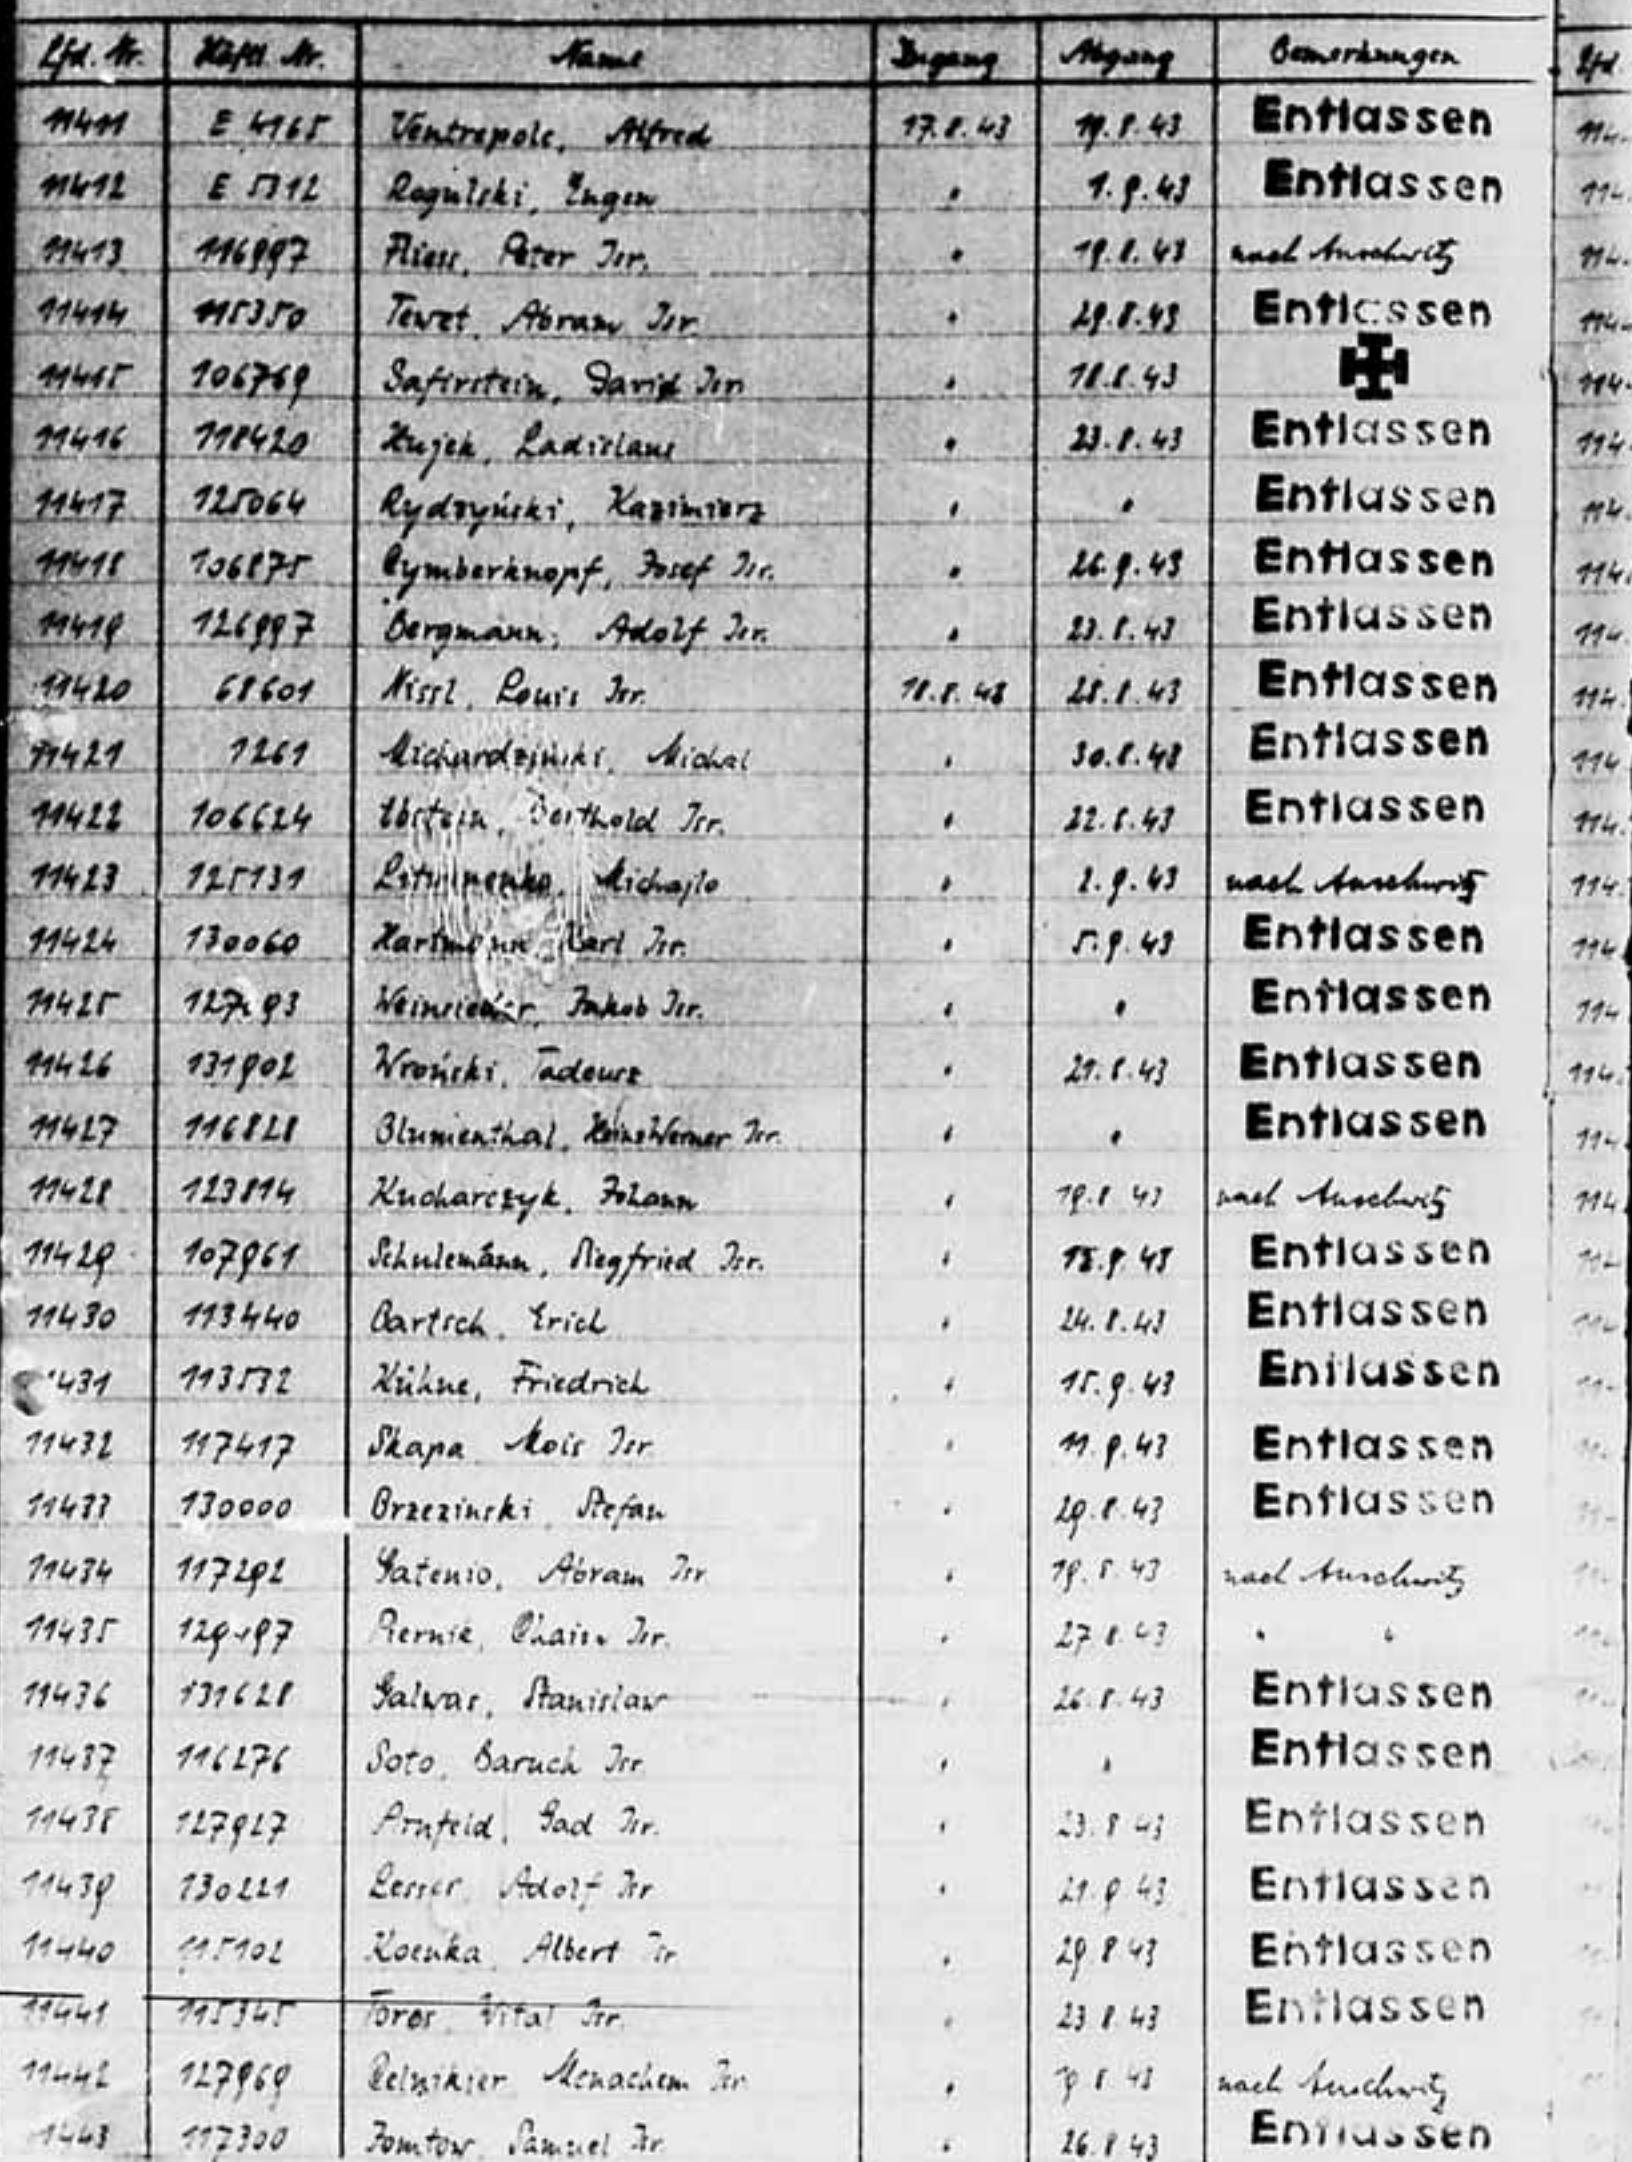 Lfd. Nr. Häftl. Nr. Name Zugang Abgang Bemerkungen Lfd
11411 E 4165 Ventrepole, Alfred 17.8.43 19.8.43 Entlassen
11412 E 5312 Rogulski, Eugen " 1.9.43 Entlassen
11413 116997 Fliess, Peter Isr. " 19.8.43 nach Auschwitz
11414 115350 Tewet, Abram Isr. " 29.8.43 Entlassen
11415 106769 Safirstein, David Isr. " 18.8.43
11416 118420 Hujek, Ladislaus " 23.8.43 Entlassen
11417 125064 Rydzyński, Kazimierz " " Entlassen
11418 106875 Cymberknopf, Josef Isr. " 26.9.43 Entlassen
11419 126997 Bergmann, Adolf Isr. " 23.8.43 Entlassen
11420 68601 Nissl, Louis Isr. 18.8.43 28.8.43 Entlassen
11421 1261 Michal " 30.8.43 Entlassen
11422 106624 Ebstein, Berthold Isr. " 22.8.43 Entlassen
11423 125131 Michajlo " 2.9.43 nach Auschwitz
11424 130060 Hartmann, Karl Isr. " 5.9.43 Entlassen
11425 Jakob Isr. " " Entlassen
11426 131902 Wroński, Tadeusz " 21.8.43 Entlassen
11427 116828 Blumenthal, Heinz Werner Isr. " " Entlassen
11428 123814 Kucharczyk, Johann " 19.8.43 nach Auschwitz
11429 107961 Schulemann, Siegfried Isr. " 18.9.43 Entlassen
11430 113440 Bartsch, Erich " 24.8.43 Entlassen
11431 113532 Kühne, Friedrich " 15.9.43 Entlassen
11432 117417 Skapa, Mois Isr. " 11.9.43 Entlassen
11433 130000 Brzezinski, Stefan " 29.8.43 Entlassen
11434 117292 Gatenio, Abram Isr. " 19.8.43 nach Auschwitz
11435 Piernik, Chaim Isr. " 27.8.43 " "
11436 131628 Galwas, Stanislaw " 26.8.43 Entlassen
11437 116276 Soto, Baruch Isr. " " Entlassen
11438 127927 Arnfeld, Gad Isr. " 23.8.43 Entlassen
11439 130221 Lesser, Adolf Isr. " 21.9.43 Entlassen
11440 115102 Koenka, Albert Isr. " 29.8.43 Entlassen
11441 115345 Toros, Vital Isr. " 23.8.43 Entlassen
11442 127969 Menachem Isr. " 19.8.43 nach Auschwitz
11443 117300 Jomtow, Samuel Isr. " 26.8.43 Entlassen